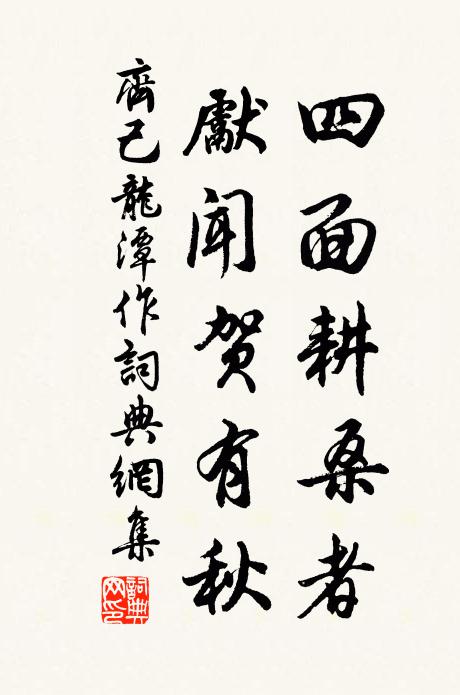 四面耕桑者
獻聞贺有秋
齊己龍潭作詞典網集
詞典网印